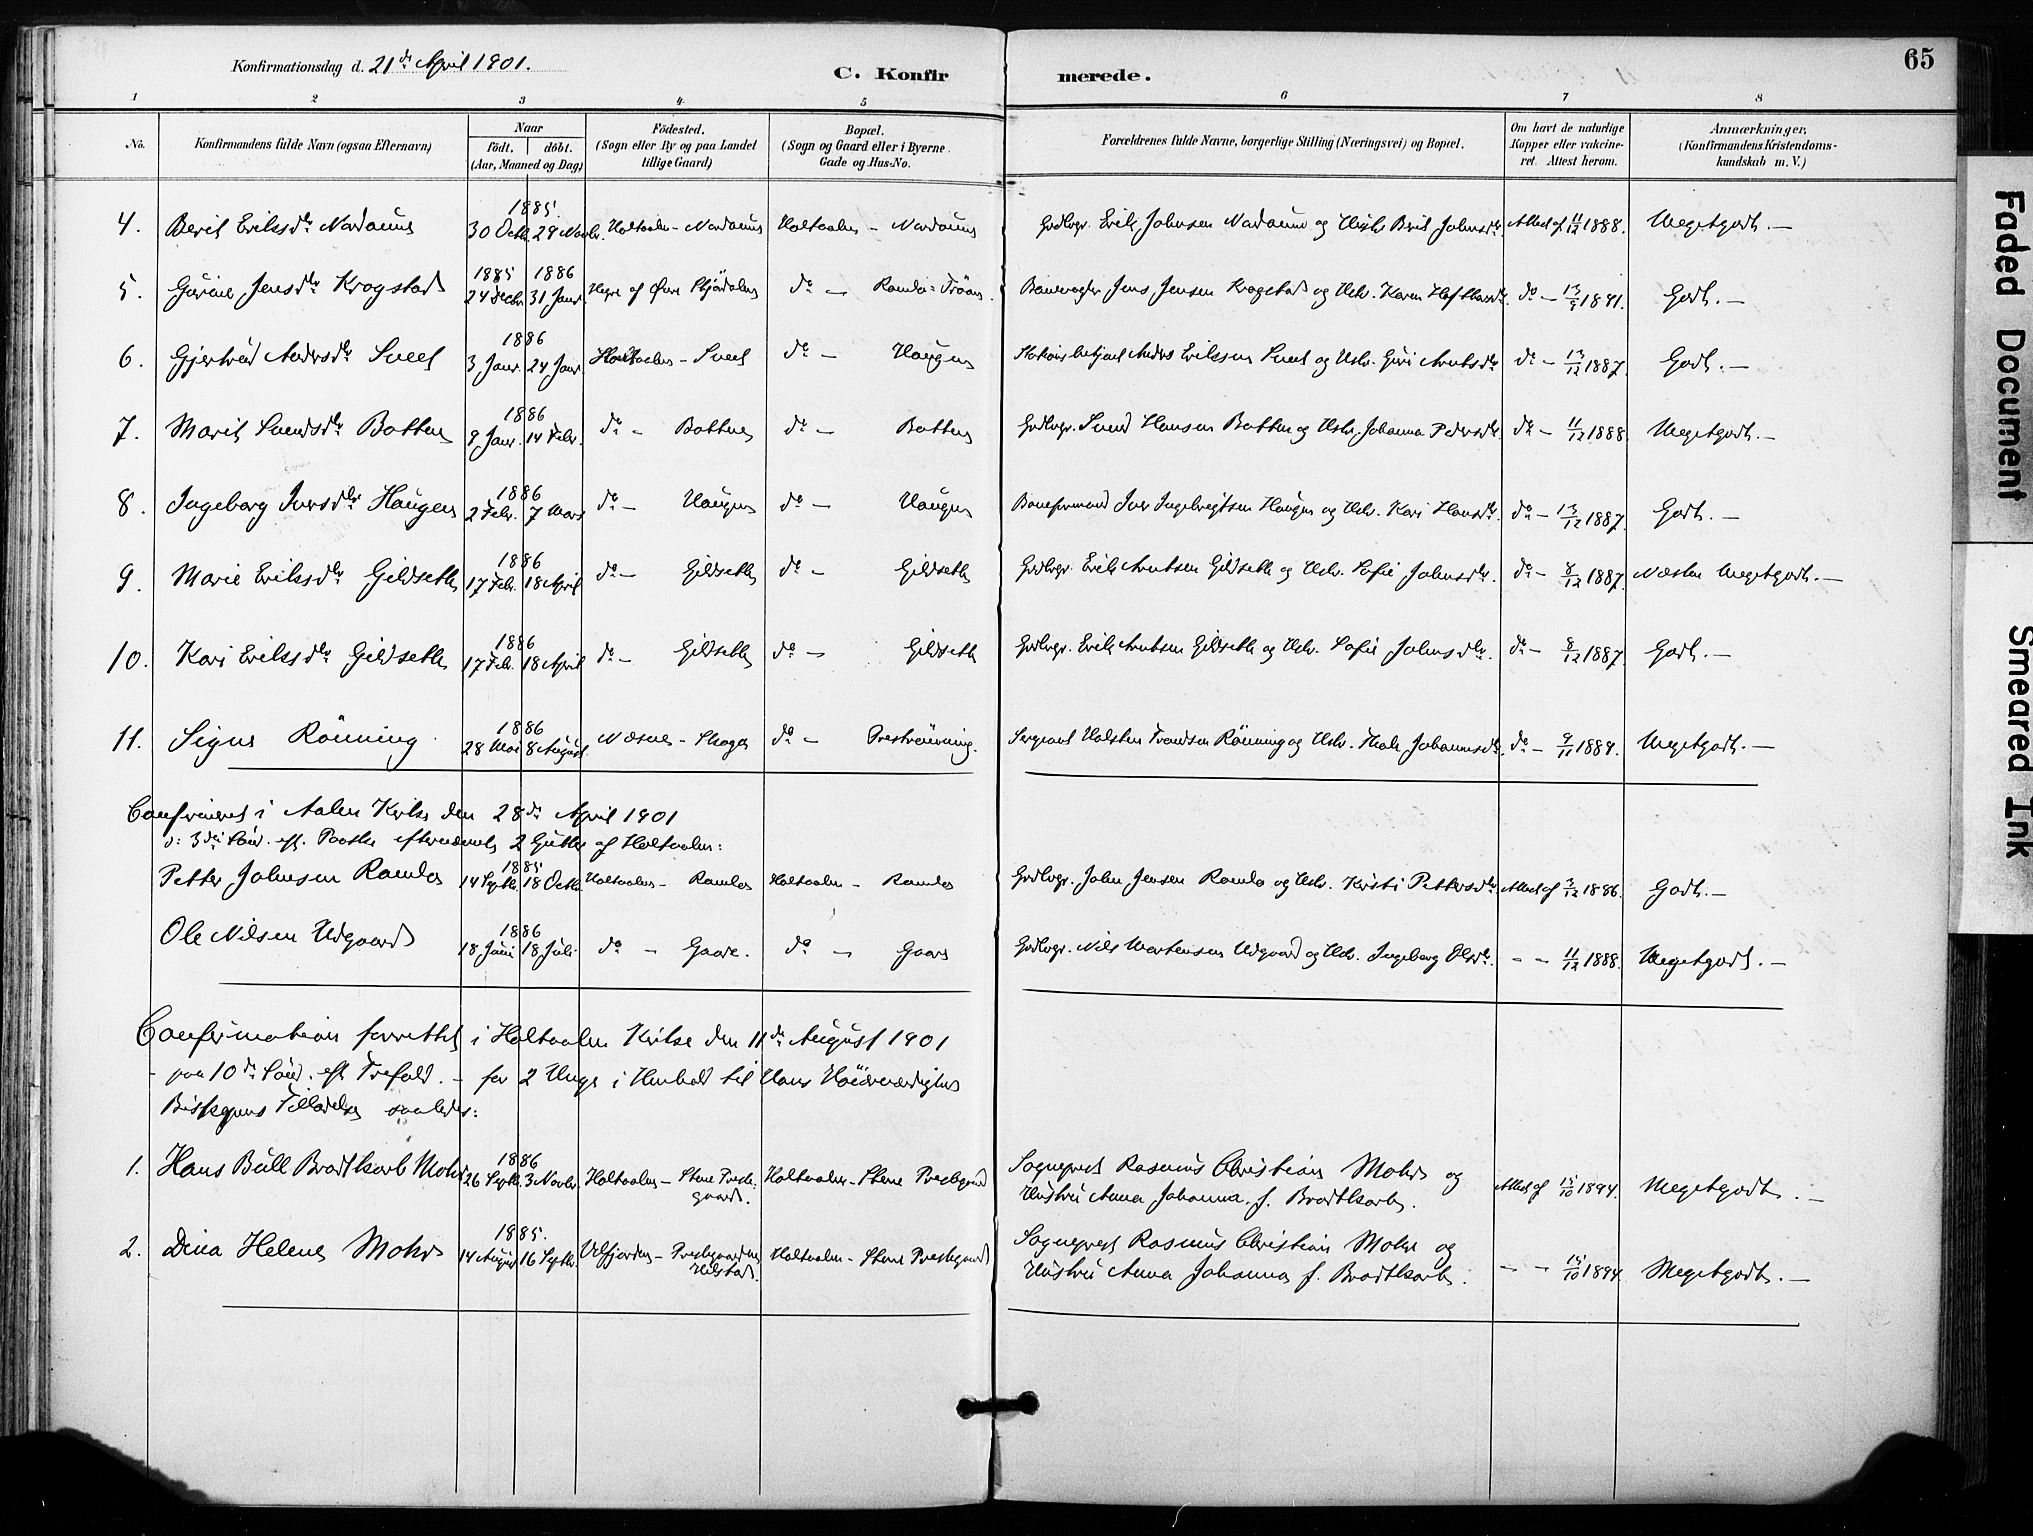 65
Konfirmationsdag d. 21de April 1901.
C. Konfirmerede.
1 2 3 4 5 6 7 8
No.
Konfirmandens fulde Navn (ogsaa Efternavn)
Naar
født. døbt.
(Aar, Maaned og Dag)
Fødested.
(Sogn eller By og paa Landet
tillige Gaard)
Bopæl.
(Sogn og Gaard eller i Byerne
Gade og Hus-No.
Forældrenes fulde Navne, borgerlige Stilling (Næringsvei) og Bopæl.
Om havt de naturlige
Kopper eller vakcine-
ret. Attest herom.
Anmærkninger,
(Konfirmandens Kristendoms-
kundskab m. V.)
4. Berit Eriksdtr Nordaune 1885. 30 Octb. 29 Novbr. Holtaalen - Nordaune Holtaalen - Nordaune Grdbrgr. Erik Johnsen Nordaune og Hustr. Berit Johnsdtr. Attest af 11/12 1888. Megetgodt. —
5. Gurine Jensdtr Krogstad 1885 24 Decbr. 1886 31 Janr. Hegre af Øvre Stjørdalen do — Ramlo-Trøan. Banevogter Jens Jensen Krogstad og Hstr. Karen do — 13/9 1891. Godt. —
6. Gjertrud Andersdtr Svect 1886 3 Janr. 24 Janr. Holtaalen - do — Haugen Anders Eriksen og Hstr. Guri Arntsdtr do — 13/12 1887. Godt. —
7. Marit Svendsdtr Botten 1886 9 Janr. 14 Febr. do — Botten do — Botten Grdbrgr. Svend Hansen Botten og Hstr. Johanna Pedersdtr. do — 11/12 1888. Megetgodt. —
8. Ingeborg Iversdtr Haugen 1886 2 Febr. 7 Mars do — Haugen do — Haugen Baneformand Iver Ingebrigtsen Haugen og Hstr. Kari Hansdtr. do — 13/12 1887. Godt. —
9. Marie Eriksdtr Gildseth 1886 17 Febr. 18 April do — Gildseth do — Gildseth Grdbrgr. Erik Arntsen Gildseth og Hstr. Sofie Johnsdtr. do — 8/12 1887. Næsten Megetgodt. —
10. Kari Eriksdtr Gildseth 1886 17 Febr. 18 April do — Gildseth do — Gildseth Grdbrgr. Erik Arntsen Gildseth og Hstr. Sofie Johnsdtr. do — 8/12 1887. Godt. —
11. Signe Rönning. 1886 28 Mai 8 August Næsne - Skage do — Preströnning. Sergeant Halsten Trondsen Rönning og Hstr. Johannesdtr. do — 9/11 1889. Megetgodt. —
Confirmeret i Aalen Kirke den 28de April 1901
ɔ: 3die Sönd. eft. Paaske efternævnte 2 Gutter af Holtaalen:
Petter Johnsen Ramlo 1885 14 Septb. 18 Octb. Holtaalen - Ramlo Holtaalen - Ramlo Grdbrgr. John Jensen Ramlo og Hstr. Kristi Pettersdtr Attest af 3/12 1886. Godt. —
Ole Nilsen Udgaard 1886 18 Juni 18 Juli do — Gaare. do — Gaare Grdbrgr. Nils Mortensen Udgaard og Hstr. Ingeborg Olsdtr. - - 11/12 1888. Megetgodt. —
Confirmation forrettet i Holtaalen Kirke den 11de August 1901
- paa 10de Sönd. eft. Trefold. - for 2 Unge i Henhold til Hans Höiærværdighed
Biskopens Tilladelse saaledes:
1. Hans Bull Brodtkorb Mohr 1886 26 Septb. 3 Novbr. Holtaalen - Stene Prestegaard. Holtaalen - Stene Prestegaard Sogneprest Rasmus Christian Mohr og
Hustru Anna Johanna, f. Brodtkorb. Attest af 15/10 1894. Megetgodt. —
2. Dina Helene Mohr 1885. 14 August 16 Septbr. Velfjorden - Prestegaarden Holtaalen - Stene Prestegaard Sogneprest Rasmus Christian Mohr og
Hustru Anna Johanna f. Brodtkorb. — — 15/10 1894. Megetgodt. —
Faded Document
Smeared Ink